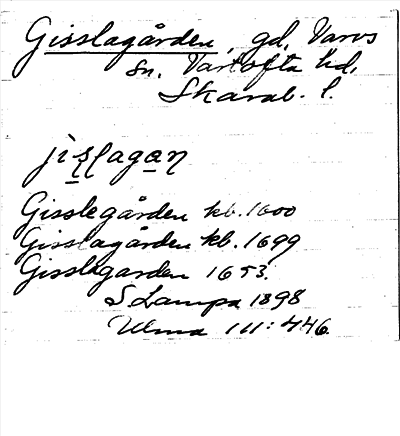 Gisslagården, gd, Varvs
sn. Vartofta hd,
Skarab. l.
jislagan
Gisslegården kb. 1600
Gisslagården kb. 1699
Gisslagarden 1653.
S Lampa 1898
Ulma 111:446.